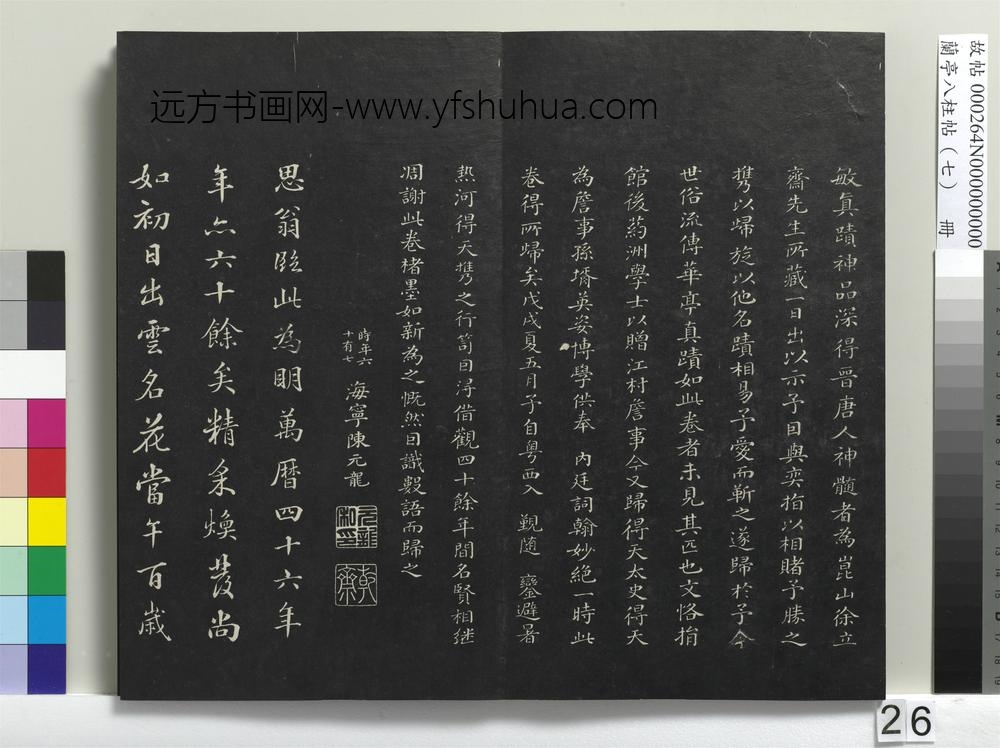 敏真蹟神品深得晉唐人神髓者為崑山徐立
齋先生所藏一日出以示予因與奕指以相賭予勝之
攜以歸旋以他名蹟相易予愛而靳之遂歸於予今
世俗流傳華亭真蹟如此卷者未見其匹也文恪捐
館後葯洲學士以贈江村詹事今又歸得天太史得天
為詹事孫壻英姿博學供奉 內廷詞翰妙絕一時此
卷得所歸矣戊戌夏五月予自粵西入 覲随 鑾避暑
熱河得天攜之行笥因得借觀四十餘年間名賢相継
凋謝此卷楮墨如新為之慨然因識數語而歸之
時年六
十有七
海寧陳元龍
思翁臨此為明萬曆四十六年
年亦六十餘矣精采煥發尚
如初日出雲名花當午百歲
远方书画网-www.yfshuhua.com
故帖 000264N000000000
蘭亭八柱帖(七) 冊
26